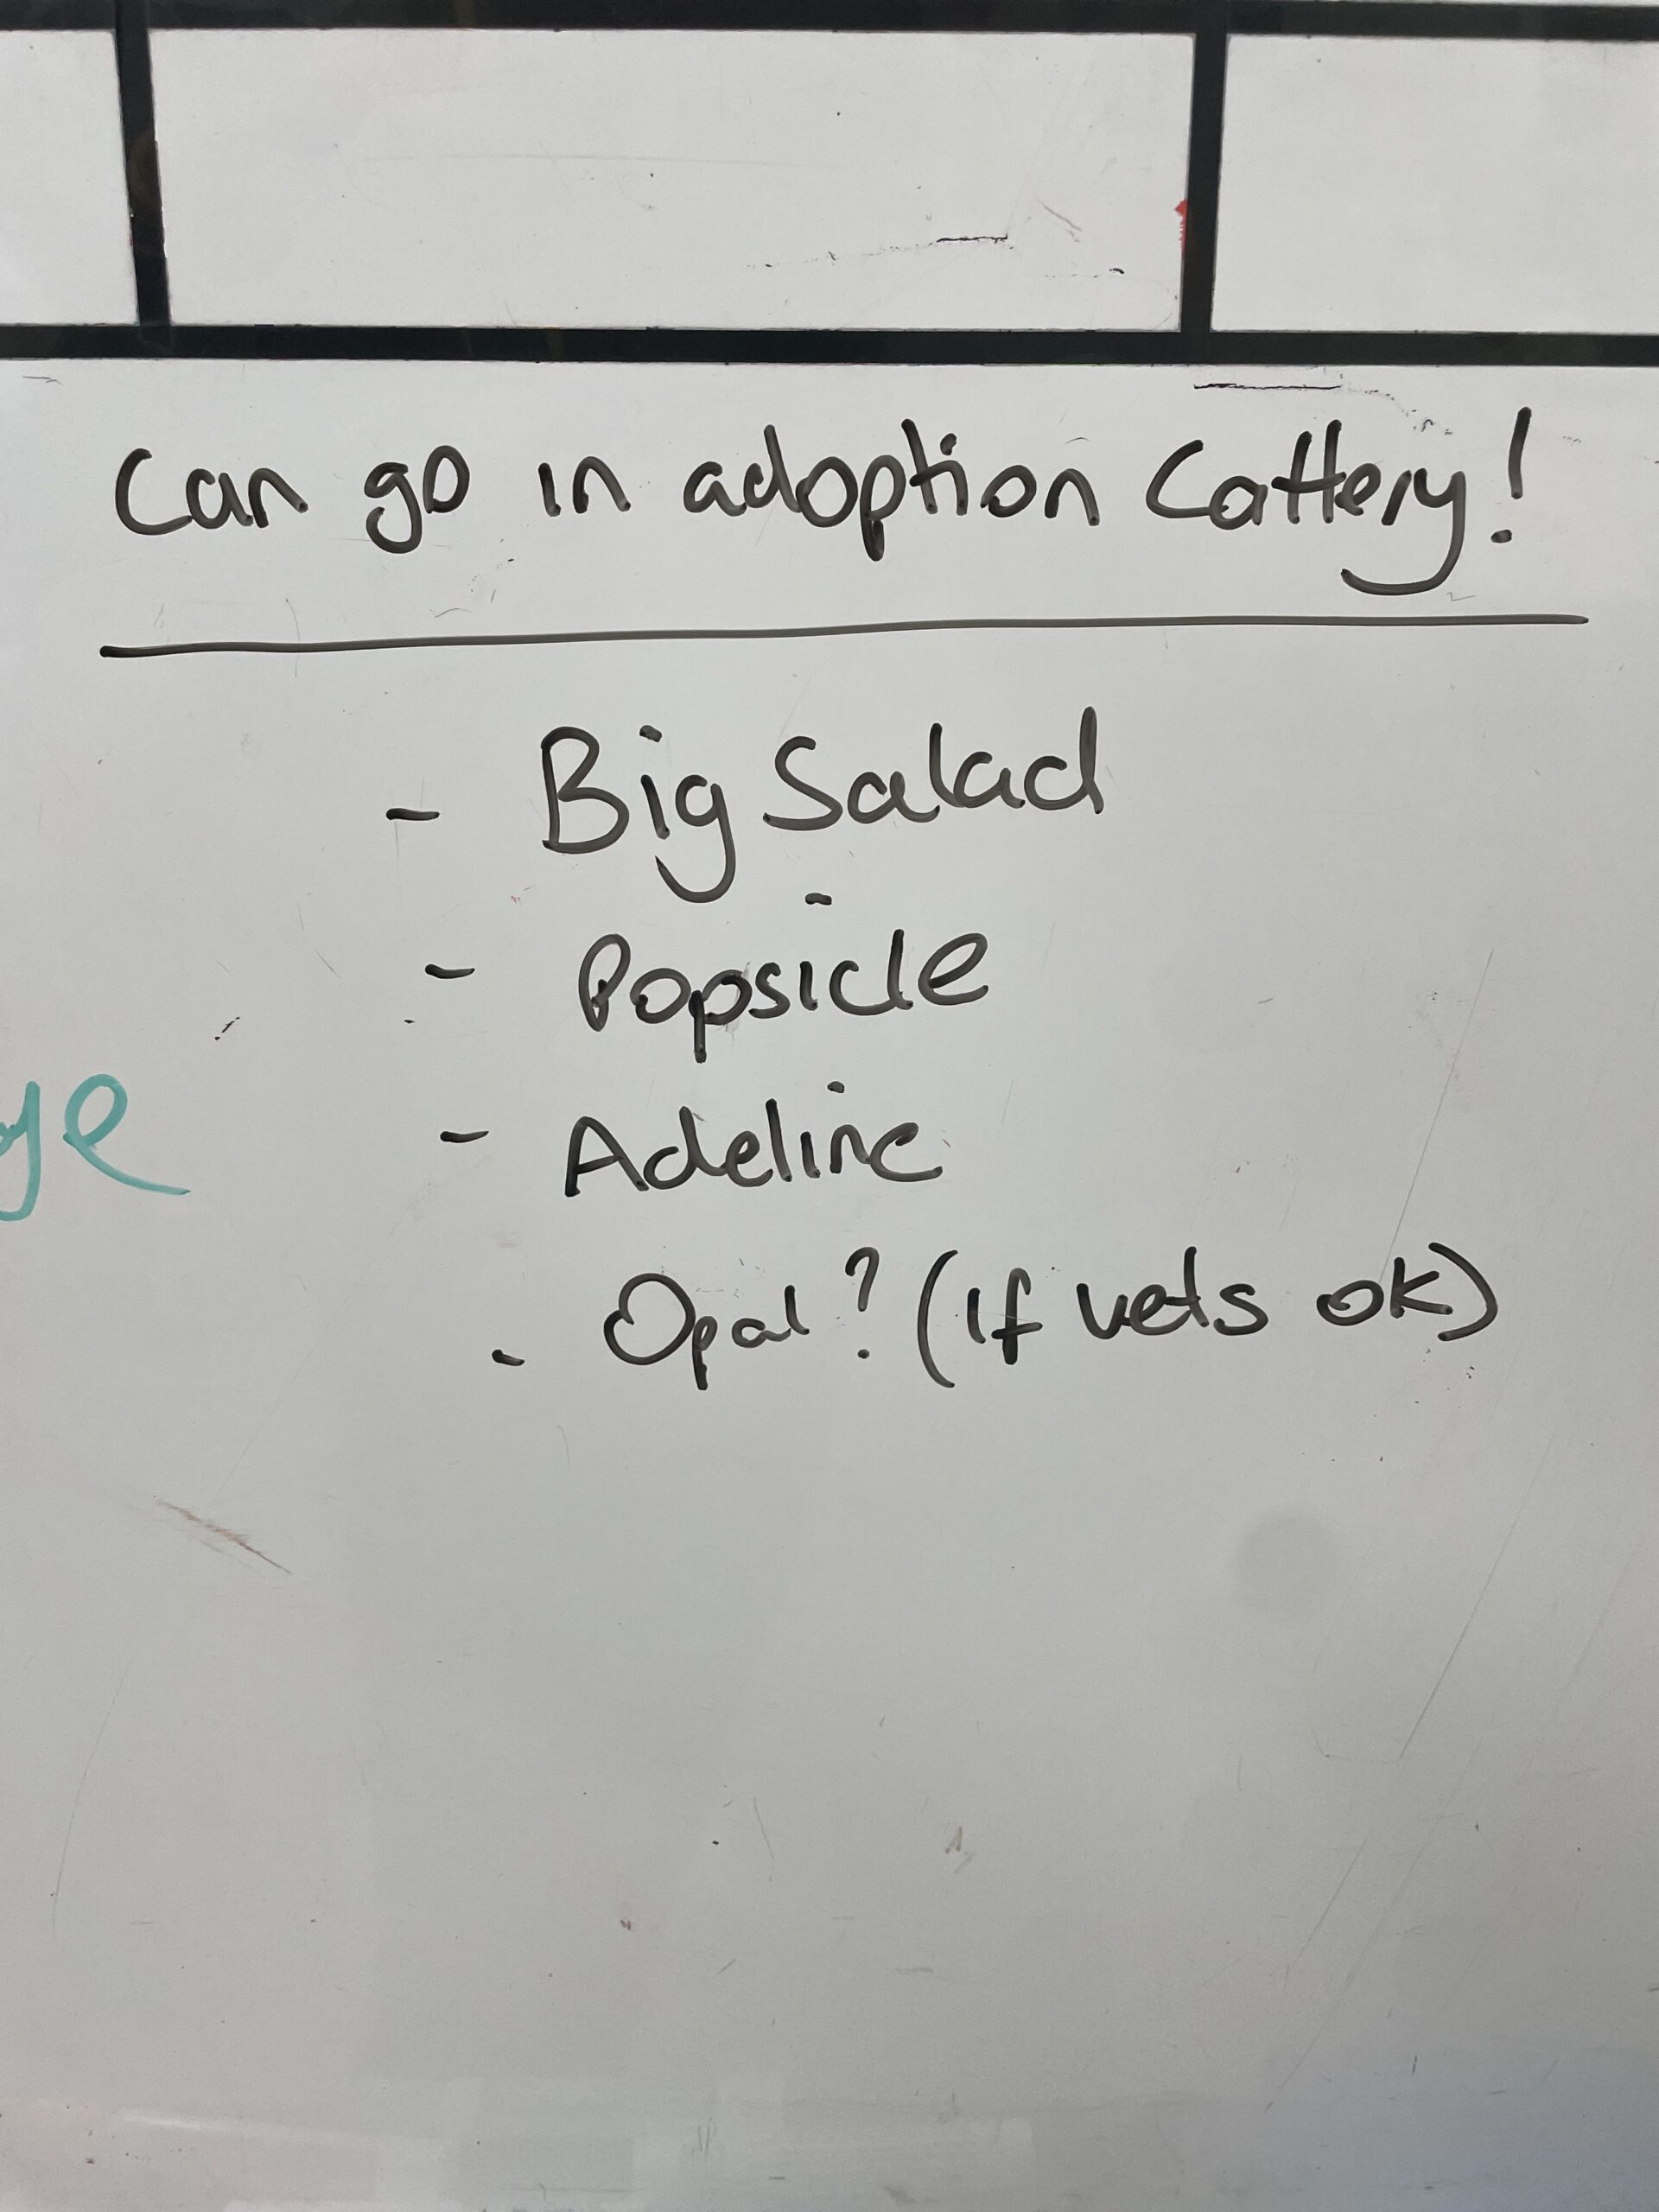 Can go in adoption Cattery!
- Big Salad
- Popsicle
- Adeline
- Opal? (If vets ok)